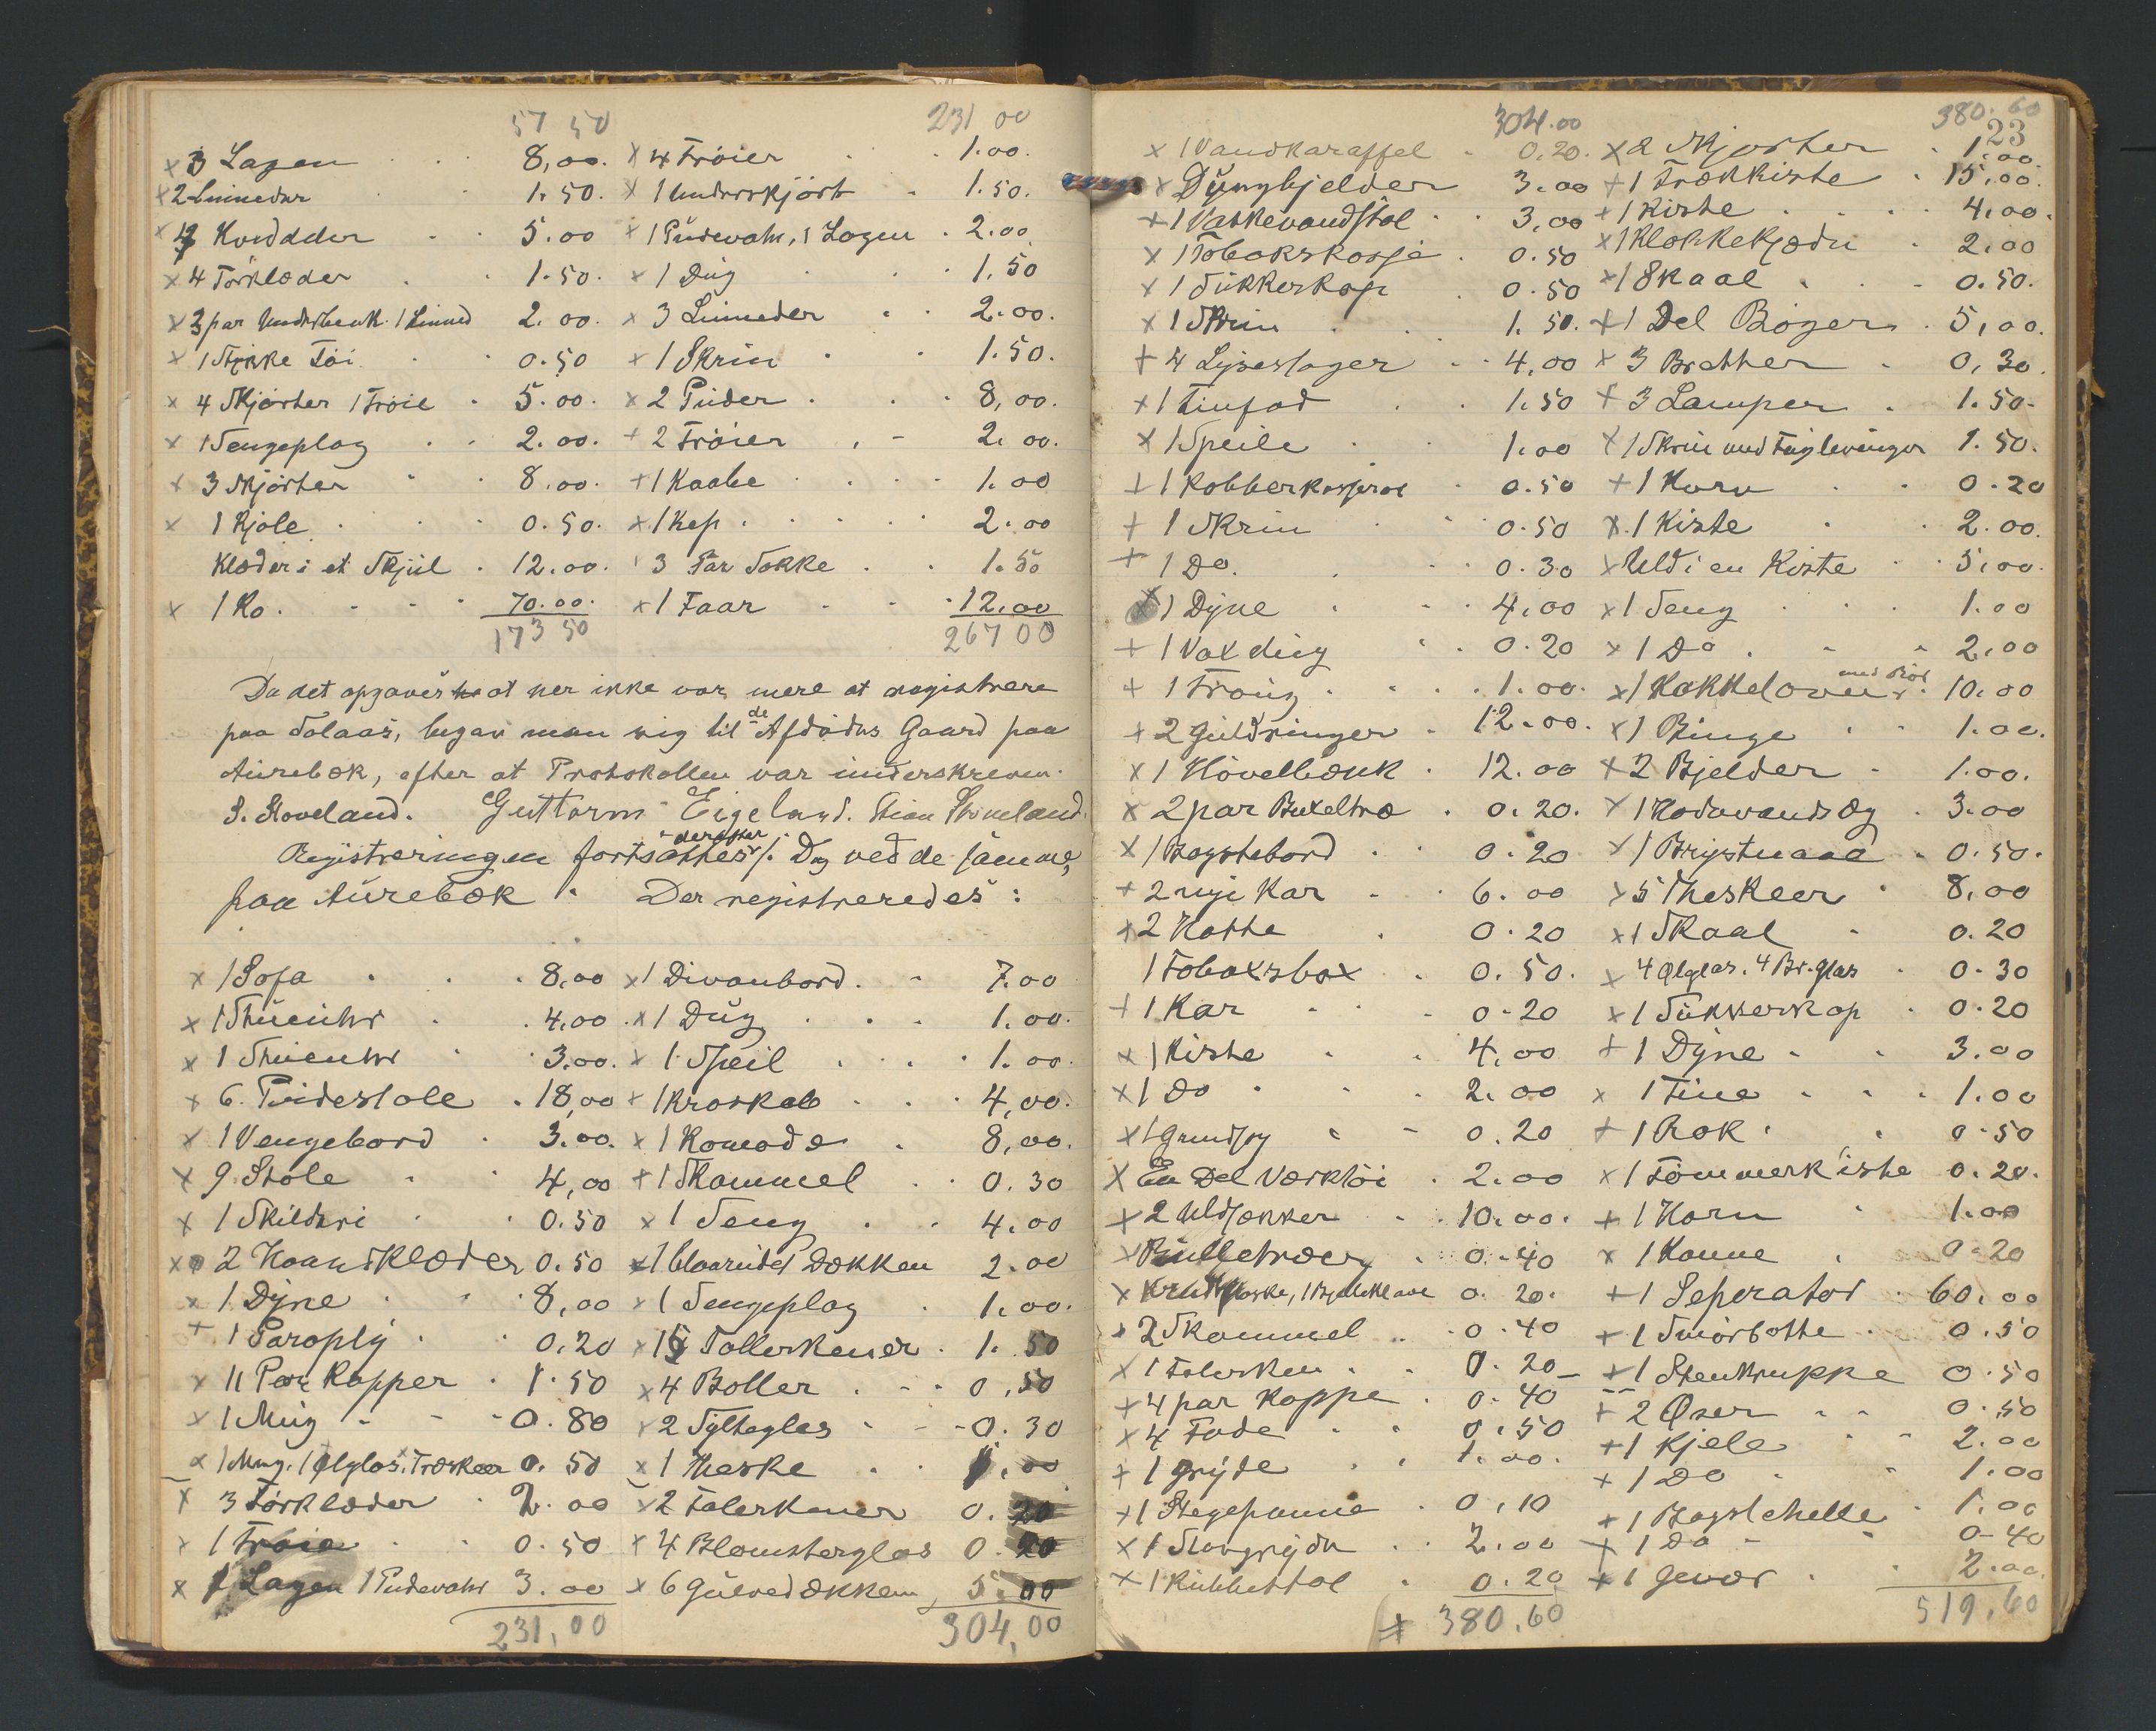 57 50
× 3 Lagen 8,00.
× 2 Linneder 1.50.
× 4 Kvedeler 5.00
× 4 Törklæder 1.50.
× 3 par Underbenk. 1 Linned 2.00.
× 1 Stykke Töi 0.50
× 4 Skjörter 1 Tröie 5.00.
× 1 Sengeplag 2.00.
× 3 Skjörter 8.00.
× 1 Kjole 0.50.
Klæder i et Skjül 12.00.
× 1 Ko. 70.00.
173 50
231 00
× 4 Tröier 1.00.
× 1 Underskjört 1.50.
× 1 Püdevahr, 1 Lagen 2.00
× 1 Düg 1.50
× 3 Linneder 2.00.
× 1 Skrin 1.50.
× 2 Püder 8,00.
+ 2 Tröier 2.00.
+ 1 Kaabe 1.00
× 1 Kep 2.00
3 Par Sokke 1.50
× 1 Faar 12,00
267 00
Da det opgaves at her ikke var mere at registrere
paa Solaas, begav man sig til de Afdödes Gaard paa
Aürebæk, efter at Protokollen var ünderskreven.
S. Stoveland. Guttorm Eigeland. Stian Stoveland.
Registreringen fortsattes derefter s. Dag ved de samme,
paa Aürebæk. Der registreredes:
× 1 Sofa 8,00
× 1 Stüeühr 4,00
× 1 Stüeuhr 3.00.
× 6 Püdestole 18,00
× 1 Vengebord 3.00.
× 9 Stole 4,00
× 1 Skilderi 0.50
× 2 Haandklæder 0.50
× 1 Dyne 8,00
+ 1 Paraply 0.20
× 11 Par Kopper 1.50
× 1 Mug 0.80
× 1 Mug. 1 Ølglas. Træskeer 0.50
× 3 Törklæder 2.00
× 1 Tröie 0.50
× 1 Lagen 1 Pudevahr 3.00
231,00
× 1 Divanbord 7.00
× 1 Düg 1.00.
× 1 Speil 1.00.
+ 1 Kroskab 4,00.
× 1 Komode 8,00.
+ 1 Skammel 0.30
× 1 Seng 4.00
× 1 blaarudet Dækken 2.00
× 1 Sengeplag 1.00.
× 15 Tallerkener 1.50
× 4 Boller 0.50
× 2 Sylteglas 0.30
× 1 Theske 1.00
× 2 Talerkener 0.20
× 4 Blomsterglas 0.20
× 6 Gülvedækken 5.00
304,00
304.00
× 1 Vandkaraffel 0.20.
× Dÿngbjelder 3.00
+ 1 Vaskevandstol 3,00
× 1 Tobakskasse 0.50
× 1 Sükkerkop 0.50
× 1 Skrin 1.50.
+ 4 Lysestager 4,00
× 1 Tinfad 1.50
× 1 Speile 1.00
+ 1 Kobberkasserol 0.50
+ 1 Skrin 0.50
+ 1 Do. 0.30
× 1 Dyne 4,00
+ 1 Voxdüg 0.20
+ 1 Traüg 1.00.
+ 2 Guldringer 12.00.
× 1 Hövelbænk 12.00
× 2 par Buxeltræ 0.20.
× 1 Bagstebord 0.20
+ 2 nye Kar 6.00
× 2 Hatte 0.20
1 Tobaksbox 0.50.
+ 1 Kar 0.20
× 1 Kiste 4,00
× 1 Do 2.00
× 1 Grindsag 0.20
× En Del Værktöi 2.00
× 2 Uldsækker 10.00.
× Rülletræer 0.40
× Krudtflaske, 1 Bjelleklave 0.20.
× 2 Skammel 0.40
× 1 Talerken 0.20
+ 4 par Koppe 0.40
× 4 Fade 0.50
+ 1 Gryde 1.00.
+ 1 Stegepanne 0,10
× 1 Slaagryde 2.00
× 1 Kubbestol 0.20
+ 380.60
380.60
23
× 2 Skjorter 1,00.
+ 1 Trækkiste 15,00.
+ 1 Kiste 4,00.
× 1 Klokkekjæde 2.00
× 1 Skaal 0.50.
+ 1 Del Böger 5,00.
× 3 Bratter 0,30.
+ 3 Lamper 1.50.
× 1 Skrin med Füglevinger 1.50.
+ 1 Kurv 0.20
× 1 Kiste 2.00.
× Uld i en Kiste 5,00.
× 1 Seng 1.00
× 1 Do 2,00
× 1 Kakkelovn med Rör 10.00
× 1 Binge 1.00.
+ 2 Bjelder 1.00.
× 1 Hodavandsæg 3.00
× 1 Brystnaal 0.50.
× 5 Theskeer 8,00
× 1 Skaal 0.20
× 4 Ølglas. 4 Br.glas 0.30
× 1 Sükkerkop 0.20
+ 1 Dyne 3.00
× 1 Tine 1.00
+ 1 Rok 0.50
× 1 Tömmerkiste 0.20.
+ 1 Horn 1.00
× 1 Kanne 0.20
+ 1 Seperator 60.00
+ 1 Smörbotte 0.50
+ 1 Stenkrukke 0.50
+ 2 Øser 0.50
+ 1 Kjele 2.00
+ 1 Do 1.00
+ 1 Bagstehelle 1.00
+ 1 Do 0.40
+ 1 Gevær 2.00.
519,60